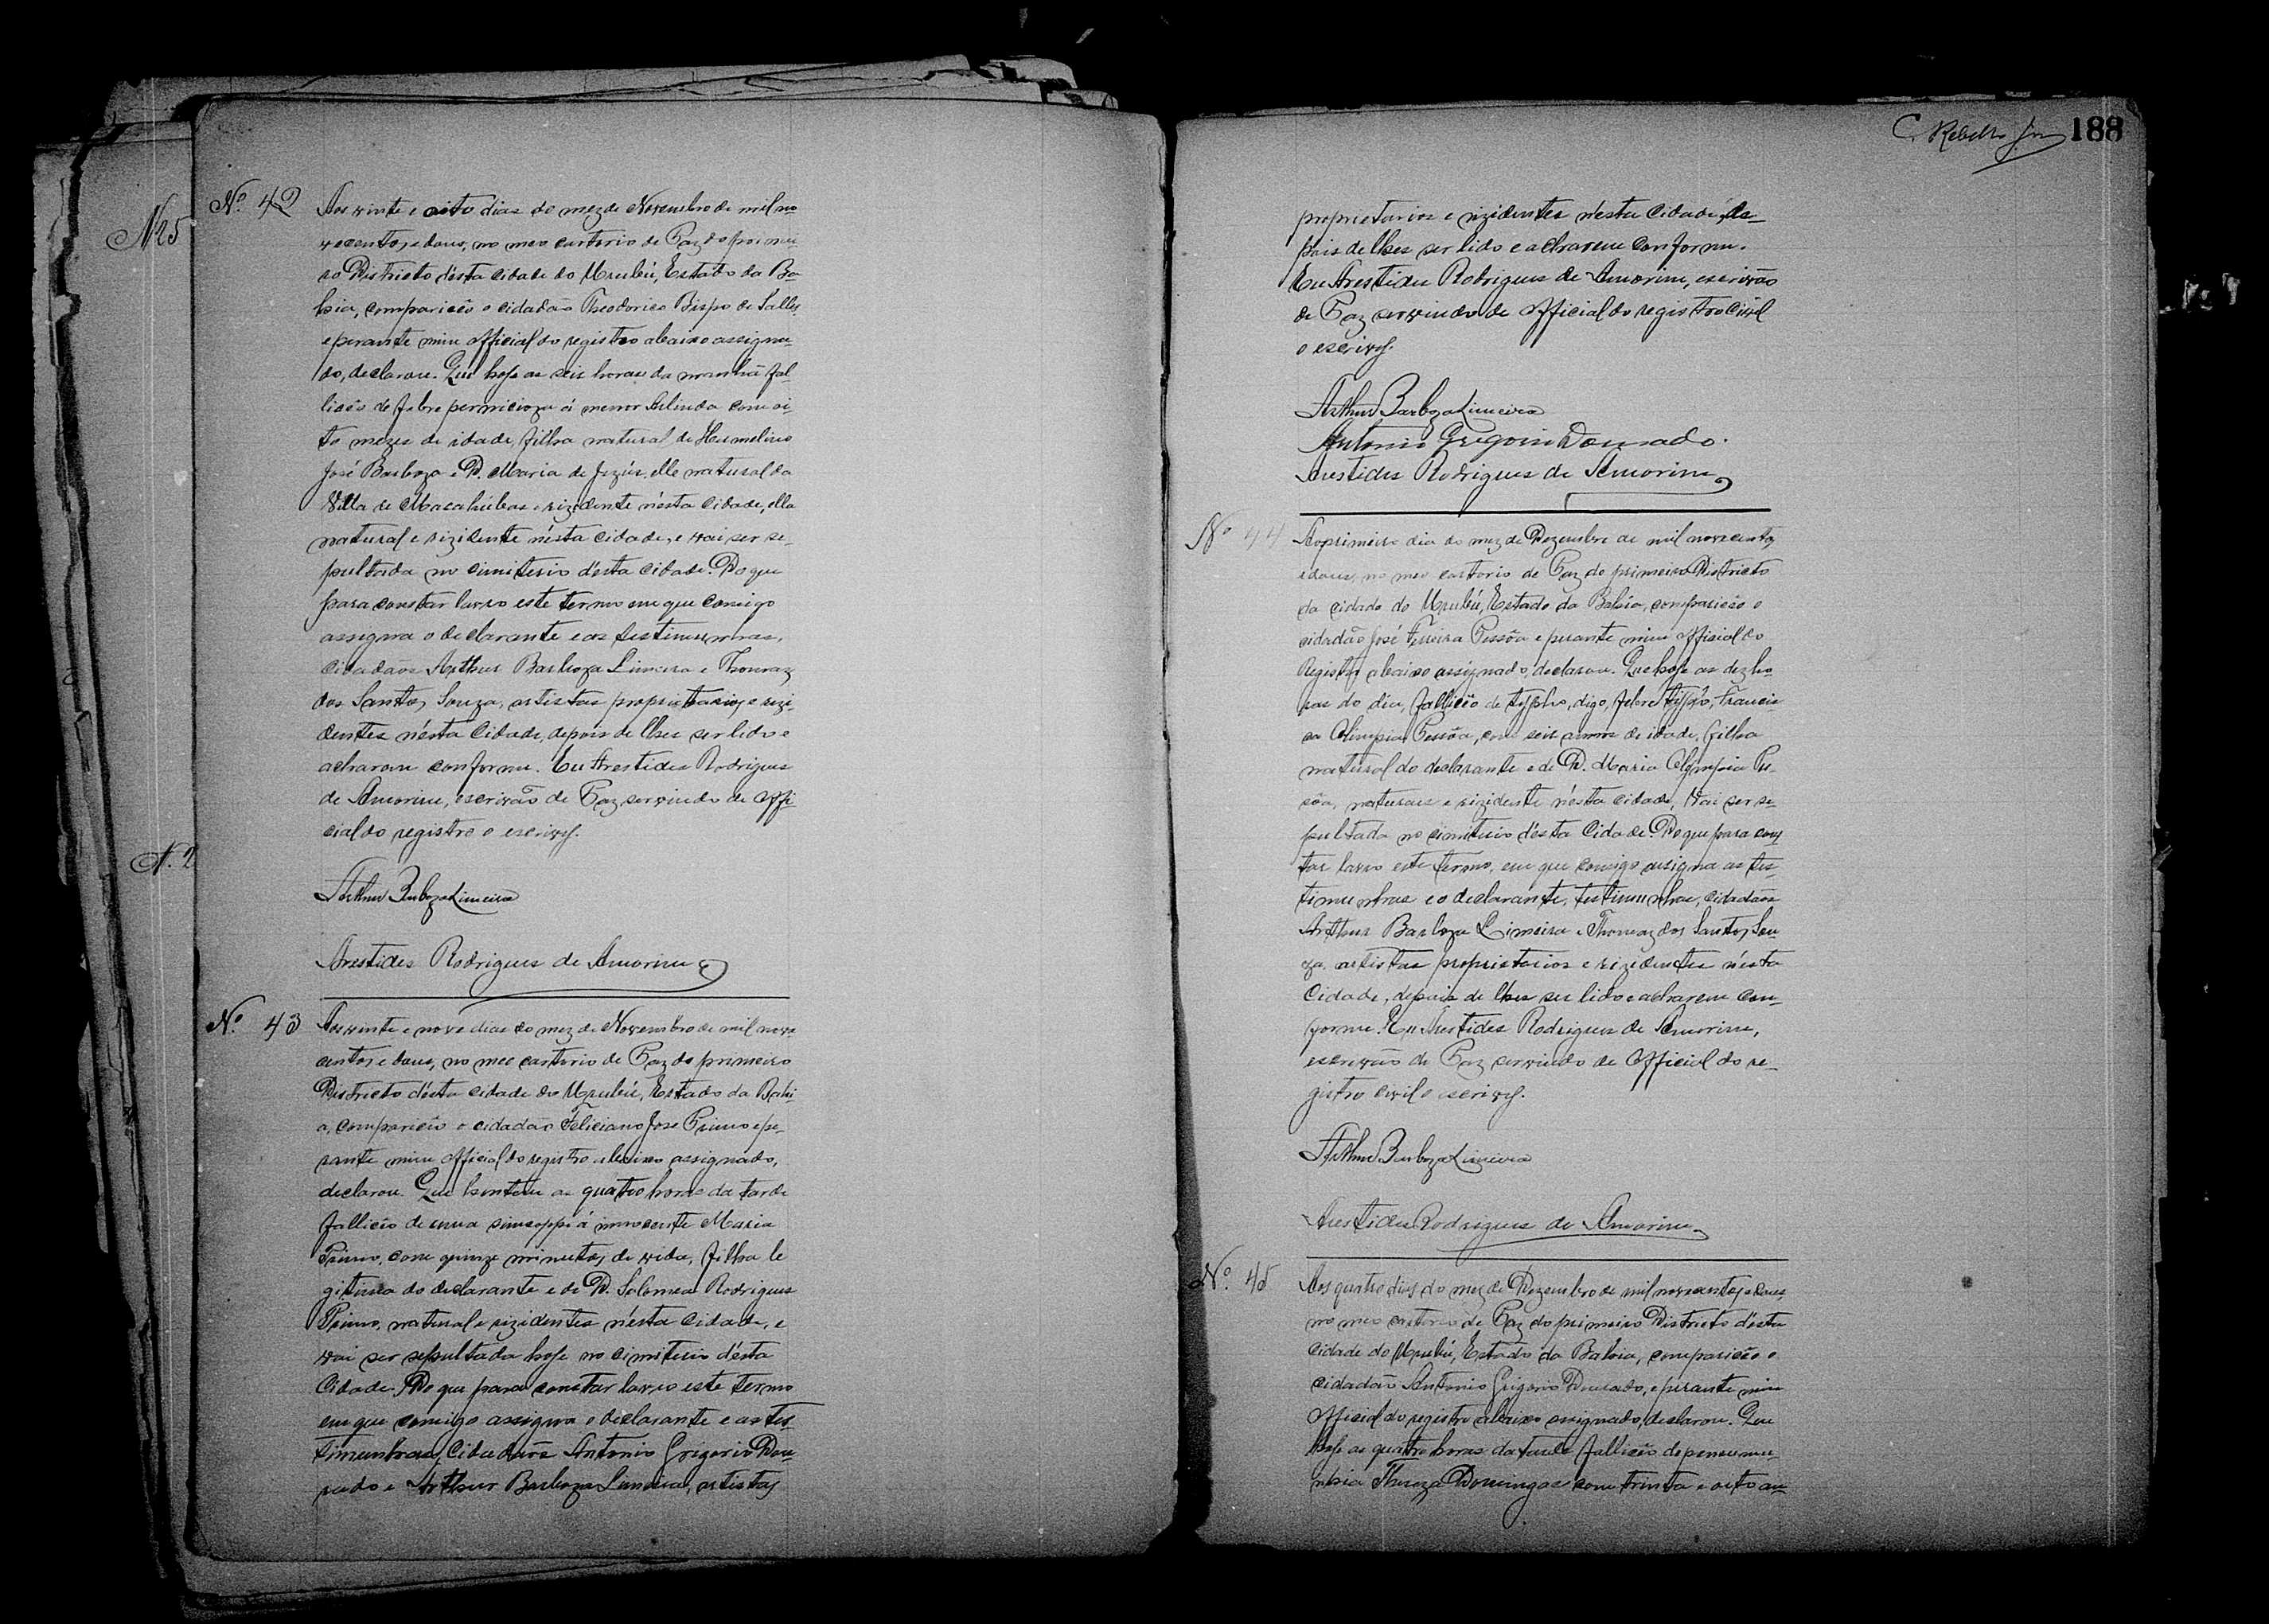 Nº 42
Aos vinte e oito dias do mez de Novembro de mil no-
vecentos e dous, no meu cartorio de Paz do primei-
ro Districto d'esta cidade do Urubú, Estado da Ba-
hia, compariceo o cidadão Theodorico Bispo de Salles
e perante mim official do registro abaixo assigna-
do, declarou. Que hoje as seis horas da manhã fal-
liceo de febre pernicioza á menor Arlinda com oi-
to mezes de idade, filha natural de Hermelino
José Barboza e D. Maria de Jezús, elle natural da
Villa de Macahubas e rizidente n'esta Cidade, ella
natural e rizidente n'ésta cidade, e vai ser se-
pultada no cimiterio d'ésta Cidade. Do que
para constar lavro este termo em que comigo
assigna o declarante e as testimunhas,
Cidadãos Arthur Barboza Limeira e Thomaz
dos Santos Souza, artistas proprietarios, e rizi-
dentes n'ésta Cidade, depois de lhes ser lido e
acharam conforme. Eu Arestides Rodrigues
de Amorim, escrivão de Paz servindo de offi-
cial do registro o escrivy.
Arthur Barboza Limeira
Arestides Rodrigues de Amorim
Nº 43
Aos vinte e nove dias do mez de Novembro de mil nove
centos e dous, no meo cartorio de Paz do primeiro
Districto d'ésta cidade do Urubú, Estado da Bahi-
a, compariceo o cidadão Feliciano José Primo e pe-
rante mim official do registro abaixo assignado,
declarou. Que hontem as quatro horas da tarde
falliceo de uma sincoppi á innocente Maria
Primo, com quinze minutos de vida, filha le
gitima do declarante e de D. Solomea Rodrigues
Primo, natural e rizidentes n'ésta Cidade, e
vai ser sepultada hoje no cimiterio d'ésta
Cidade. Do que para constar lavro este termo
em que comigo assigna o declarante e as tes-
timunhas, Cidadãos Antonio Grigorio Dou-
rado e Arthur Barboza Limeira, artistas
Nº 25
N. 2
C. Rebello Jor 188
proprietarios e rizidentes n'esta Cidade, de-
pois de lhes ser lido e acharem conforme.
Eu Arestides Rodrigues de Amorim, escrivão
de Paz servindo de official do registro Civil
o escrivy.
Arthur Barboza Limeira
Antonio Gregorio Dourado.
Arestides Rodrigues de Amorim
Nº 44
Ao primeiro dia do mez de Dezembro de mil novecentos
e dous, no meo cartorio de Paz do primeiro Districto
da cidade do Urubú, Estado da Bahia, compariceo o
cidadão José Pereira Pessôa e perante mim official do
Registro abaixo assignado, declarou. Que hoje as dez ho-
ras do dia, falliceo de typho, digo, febre typho, Francis-
ca Olimpia Pessôa, com seis annos de idade, filha
natural do declarante e de D. Maria Olympia Pe-
sôa, naturaes e rizidente n'ésta cidade, Vai ser se-
pultada no cimiterio d'ésta Cidade. Do que para cons
tar lavro este termo, em que comigo assigna as tes-
timunhas e o declarante, testimunhas, cidadãos
Arthur Barboza Limeira e Thomaz dos Santos Sou-
za, artistas proprietarios e rizidentes n'ésta
Cidade, depois de lhes ser lido e acharem con-
forme. Eu Arestides Rodrigues de Amorim,
escrivão de Paz servindo de Official do re-
gistro civil o escrivy.
Arthur Barboza Limeira
Arestides Rodrigues de Amorim
Nº 45
Aos quatro dias do mez de Dezembro de mil novecentos e dous,
no meo cartorio de Paz do primeiro Districto d'ésta
Cidade do Urubú, Estado da Bahia, compariceo o
cidadão Antonio Grigorio Dourado, e perante mim
Official do registro abaixo assignado, declarou. Que
hoje as quatro horas da tarde falliceo de pneumu-
nhia Thereza Domingas com trinta e oito an-